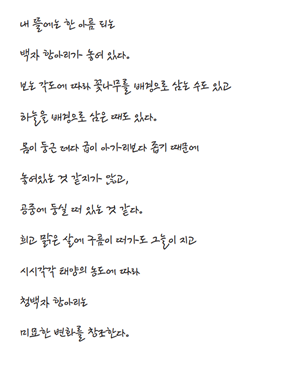 내 뜰에는 한 아름 되는
백자 항아리가 놓여 있다.
보는 각도에 따라 꽃나무를 배경으로 삼는 수도 있고
하늘을 배경으로 삼은 때도 있다.
몸이 둥근 데다 굽이 아가리보다 좁기 때문에
놓여있는 것 같지가 않고,
공중에 둥실 떠 있는 것 같다.
희고 맑은 살에 구름이 떠가도 그늘이 지고
시시각각 태양의 농도에 따라
청백자 항아리는
미묘한 변화를 창조한다.